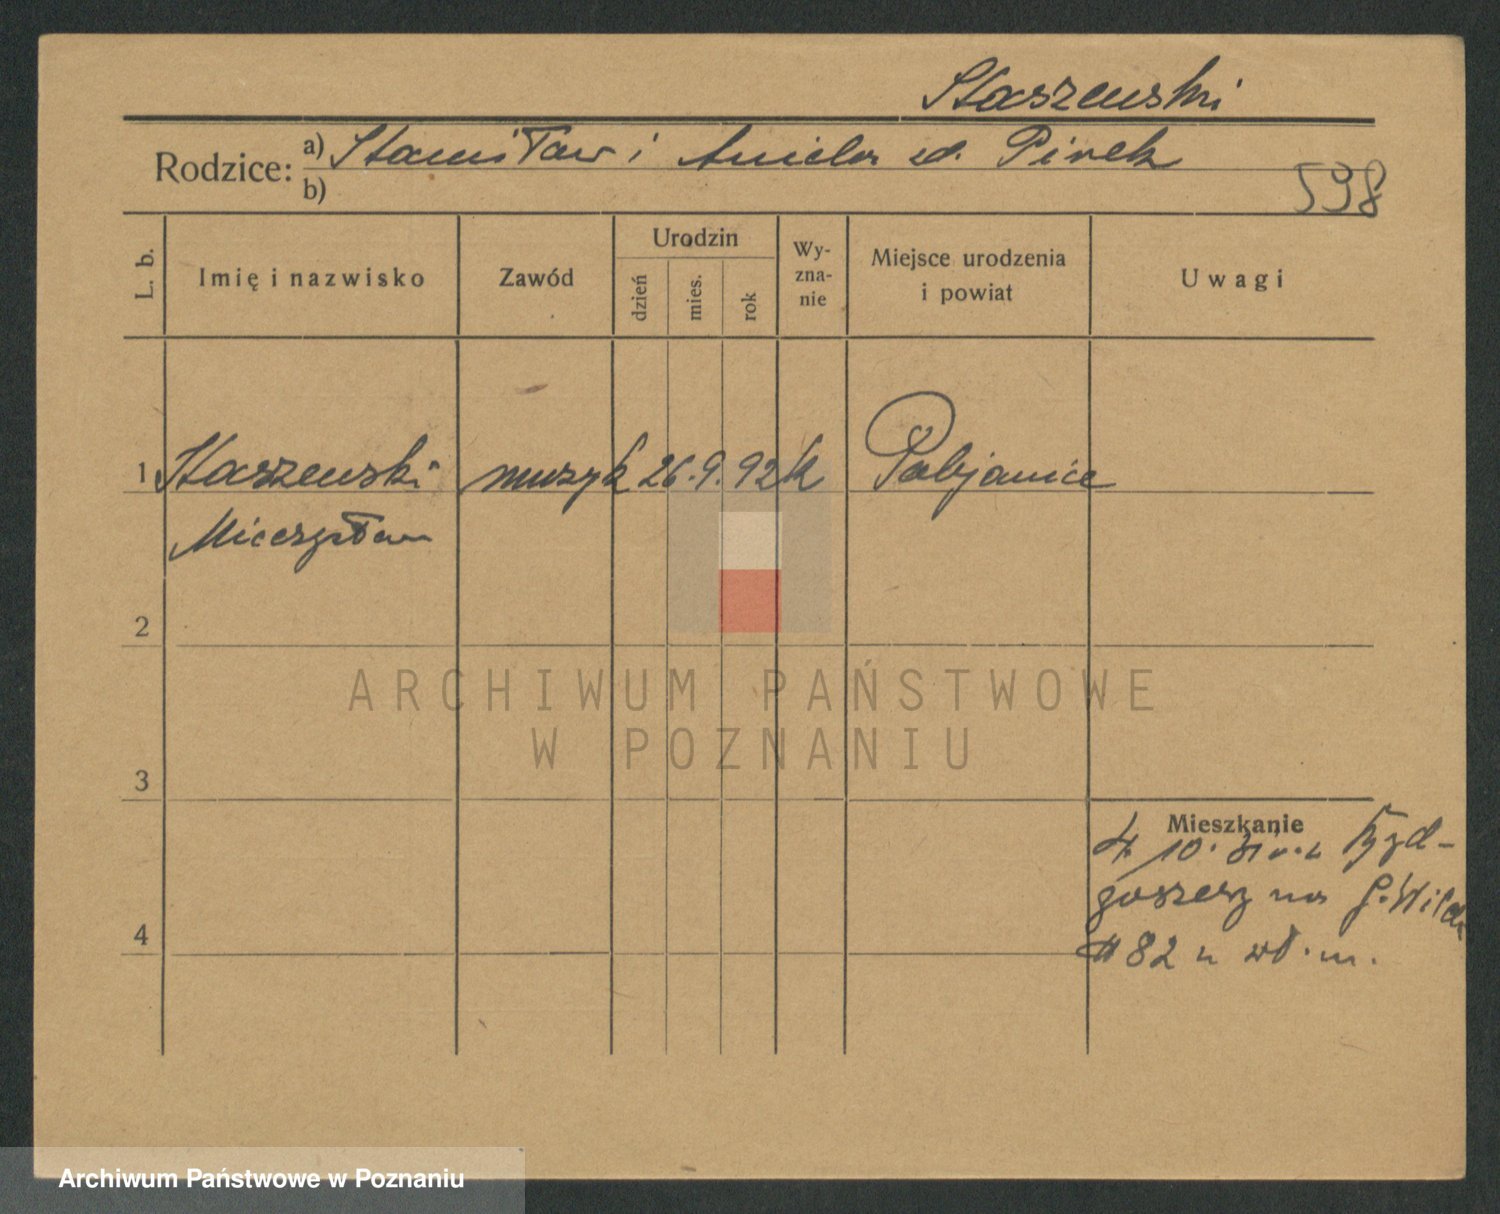 Staszewski
Rodzice: a) Stanisław i Aniela z d. Pirek
b)
598
L. b.
Imię i nazwisko
Zawód
Urodzin
dzień
mies.
rok
Wy-
zna-
nie
Miejsce urodzenia
i powiat
Uwagi
1 Staszewski muzyk 26. 9. 92 k Pabjanice
Mieczysław
2
ARCHIWUM PAŃSTWOWE
W POZNANIU
3
Mieszkanie
4. 10.
goszczy na G. Wilda
82 u wł. m.
4
Archiwum Państwowe w Poznaniu